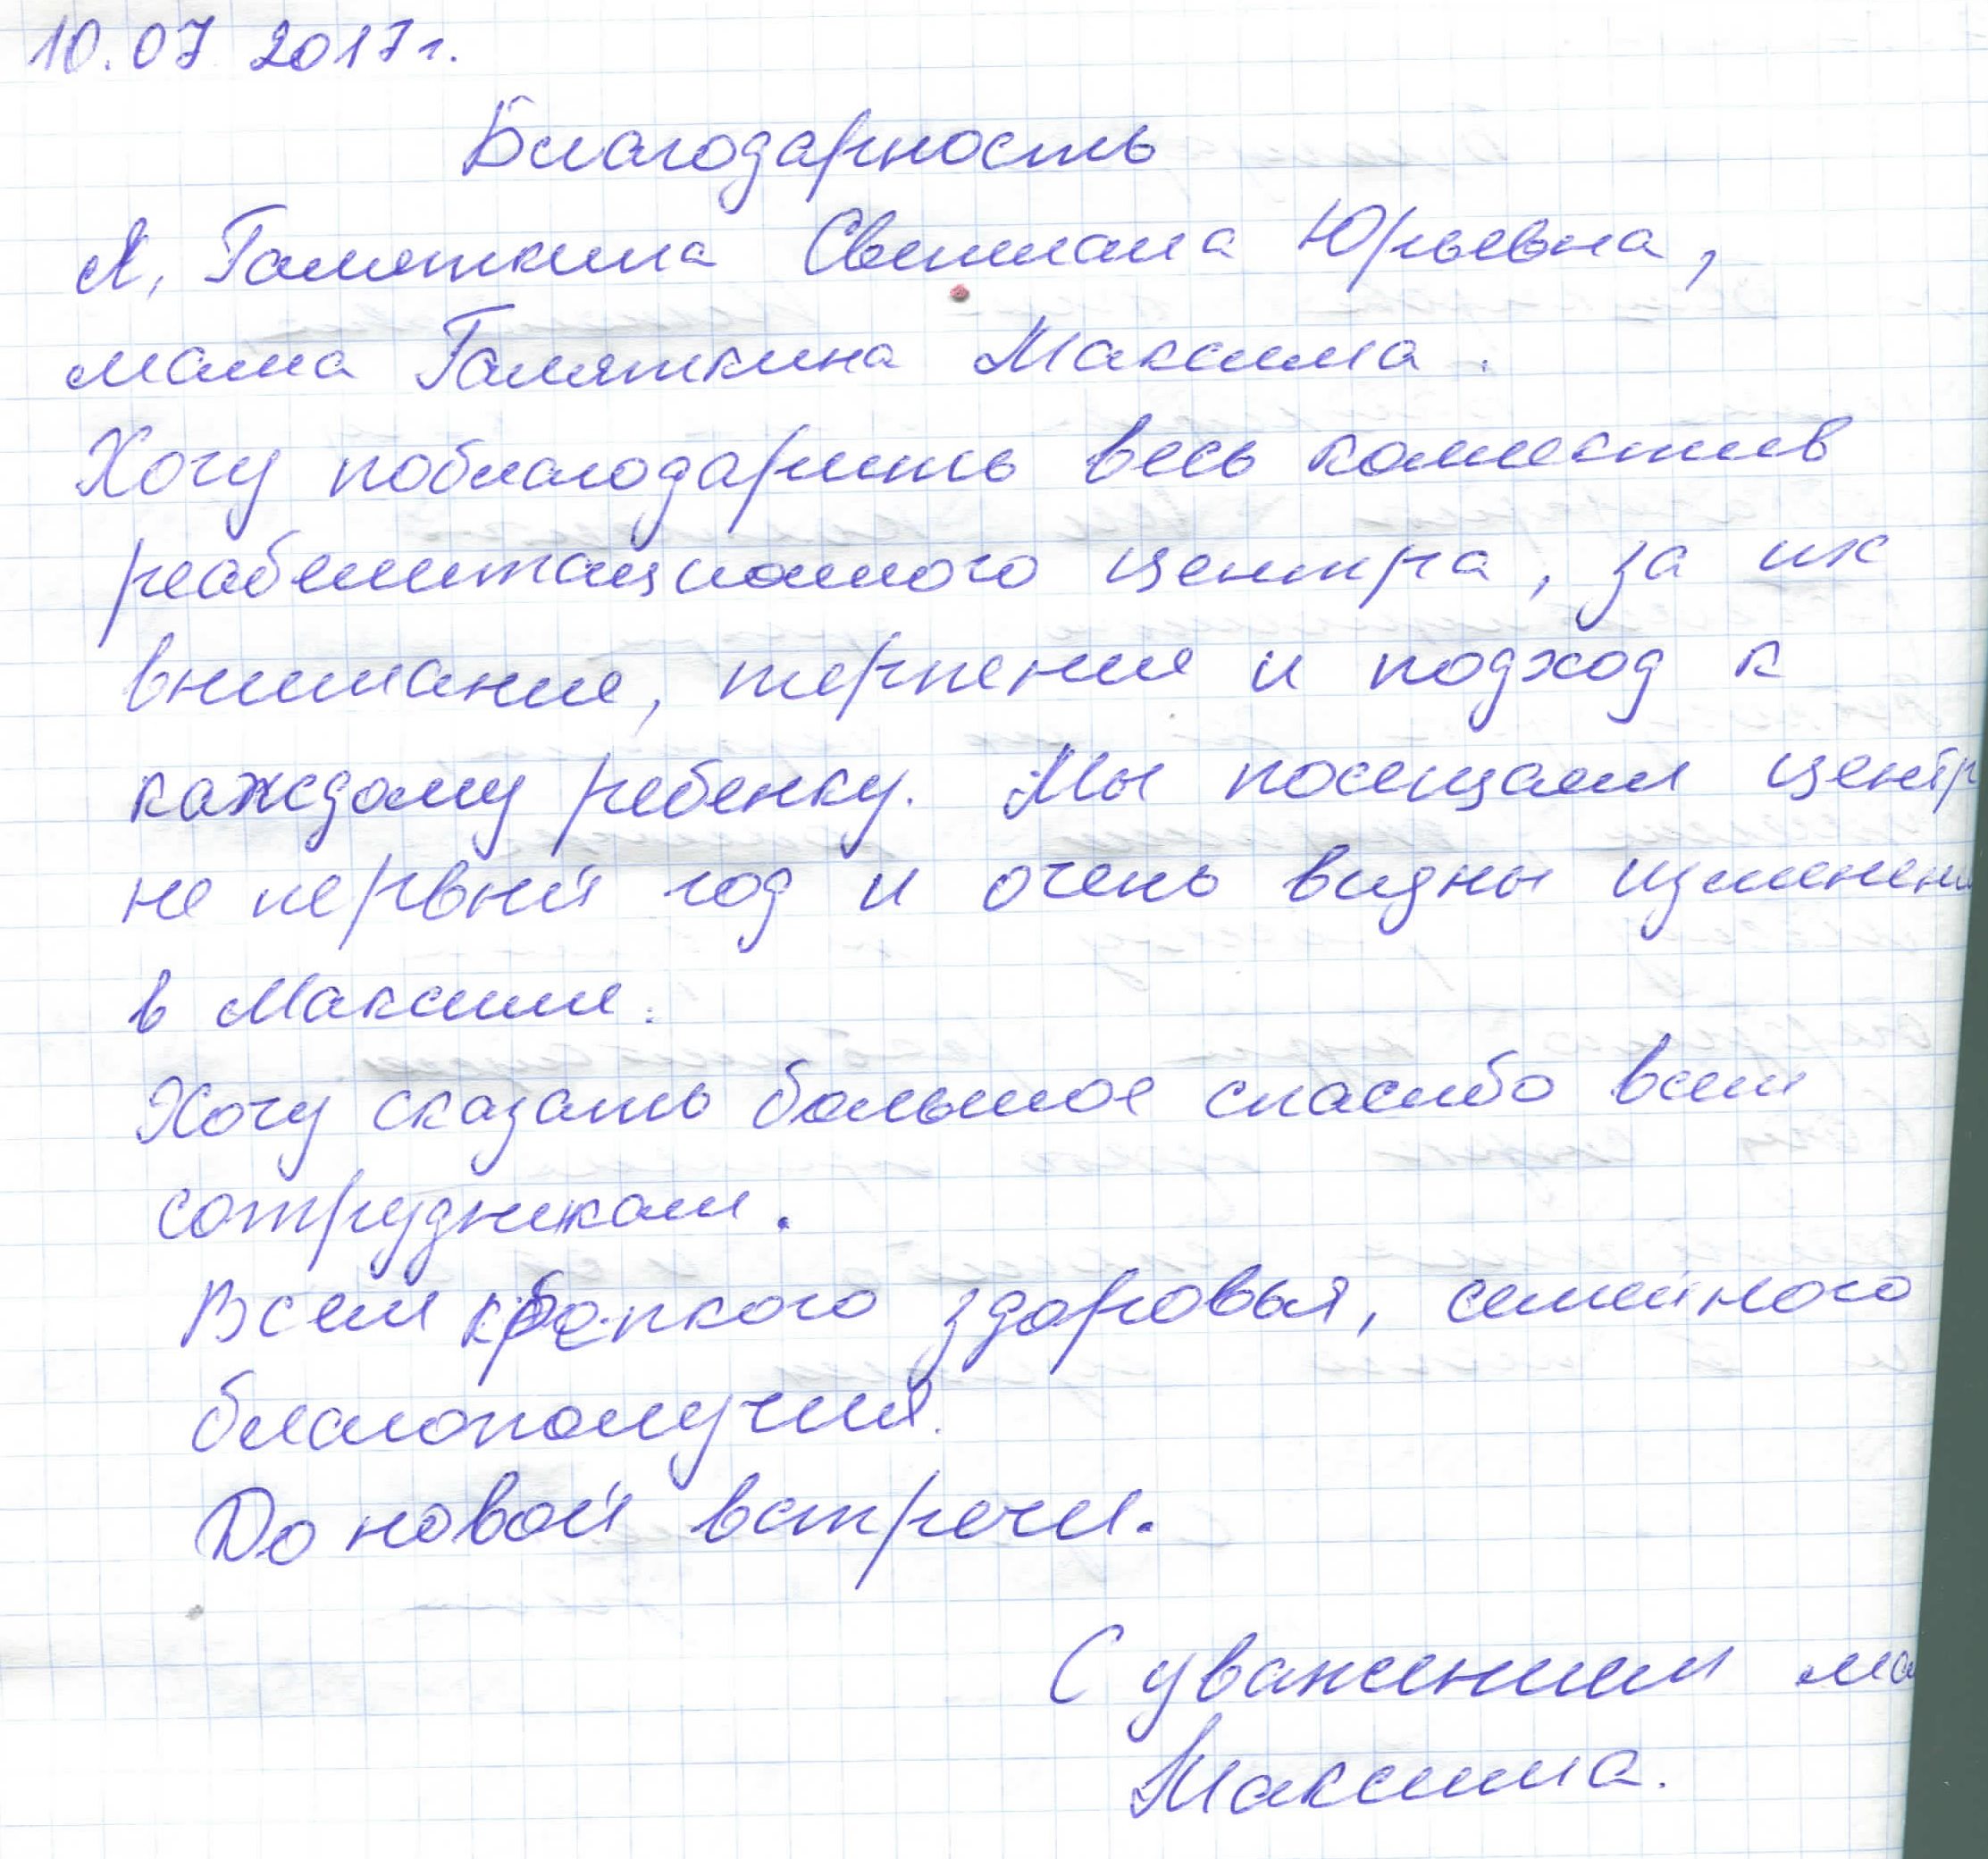 10.07 2017г.
Благодарность
Я, Галяткина Светлана Юрьевна,
мама Галяткина Максима.
Хочу поблагодарить весь коллектив
реабелитационного центра, за их
внимание, терпение и подход к
каждому ребенку. Мы посещаем центр
не первый год и очень видны изменени
в Максиме.
Хочу сказать большое спасибо всем
сотрудникам.
Всем крепкого здоровья, семейного
благополучия.
До новой встречи.
С уважением ма
Максима.